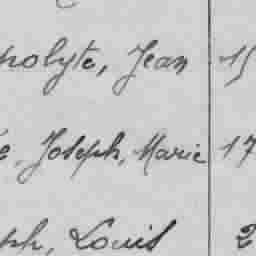 polyte, Jean 15
e, Joseph, Marie 17
ph, Louis 2